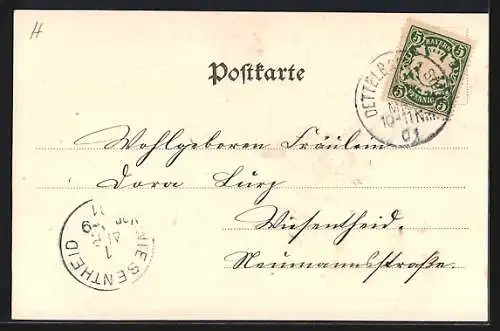 H
Postkarte
5 BAYERN 5
5 PFENNIG 5
DETTELB
1 SEP
10-11 Nm
01
Wohlgeboren Fräulein
Dora Lurz
Wiesentheid.
Neumannsstraße.
WIESENTHEID